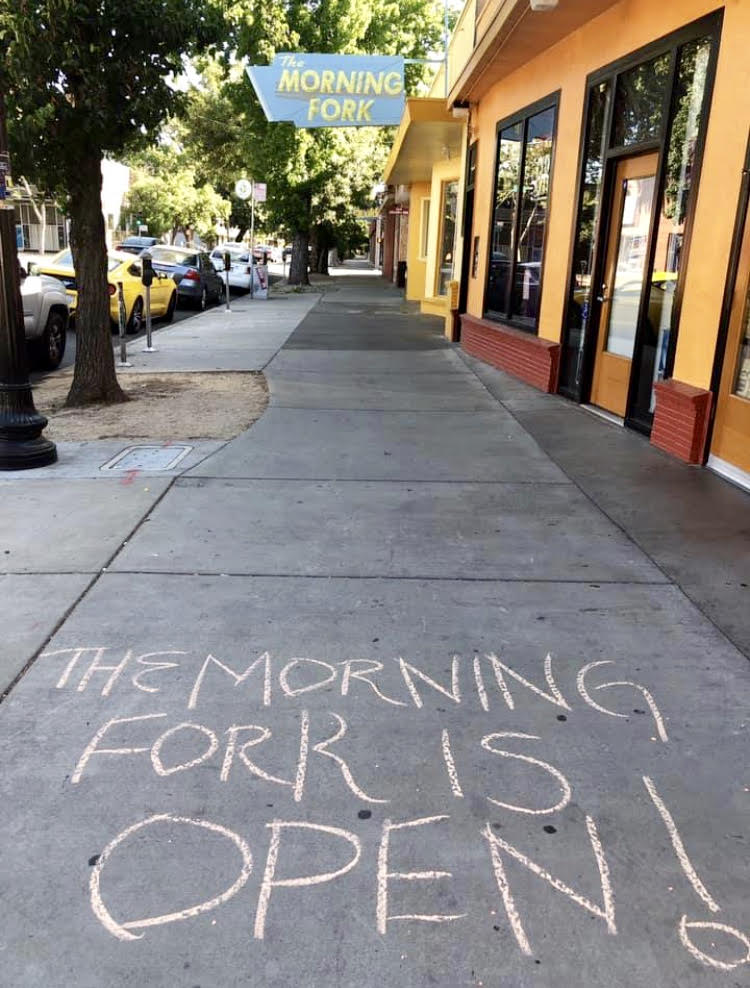 The
MORNING
FORK
THE MORNING
FORK IS
OPEN!